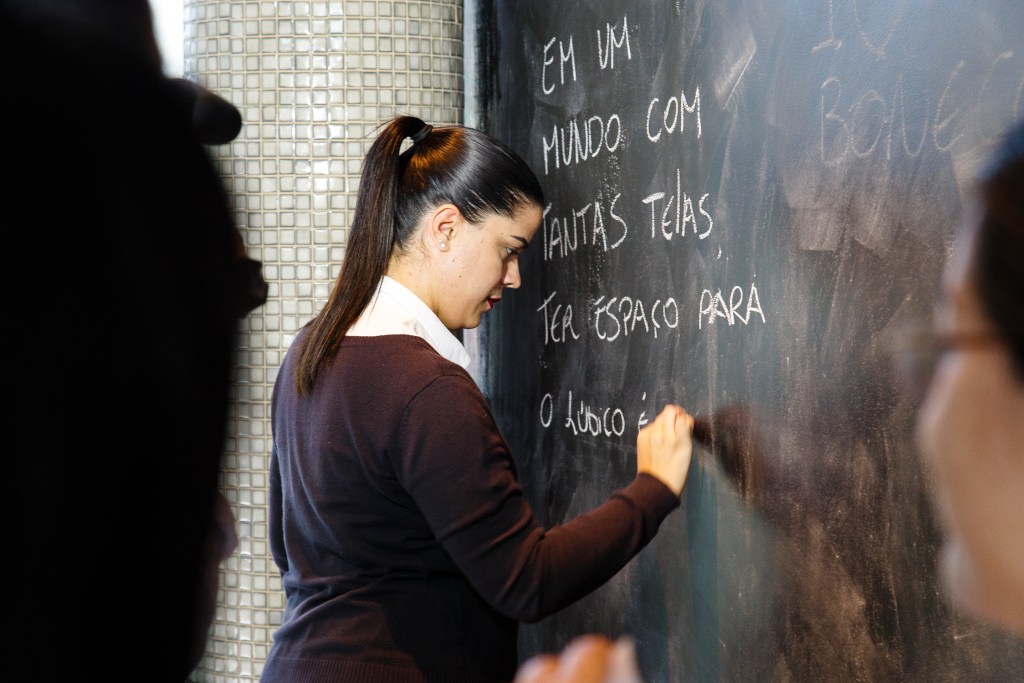 EM UM
MUNDO COM
TANTAS TELAS,
TER ESPAÇO PARA
O LÚDICO É